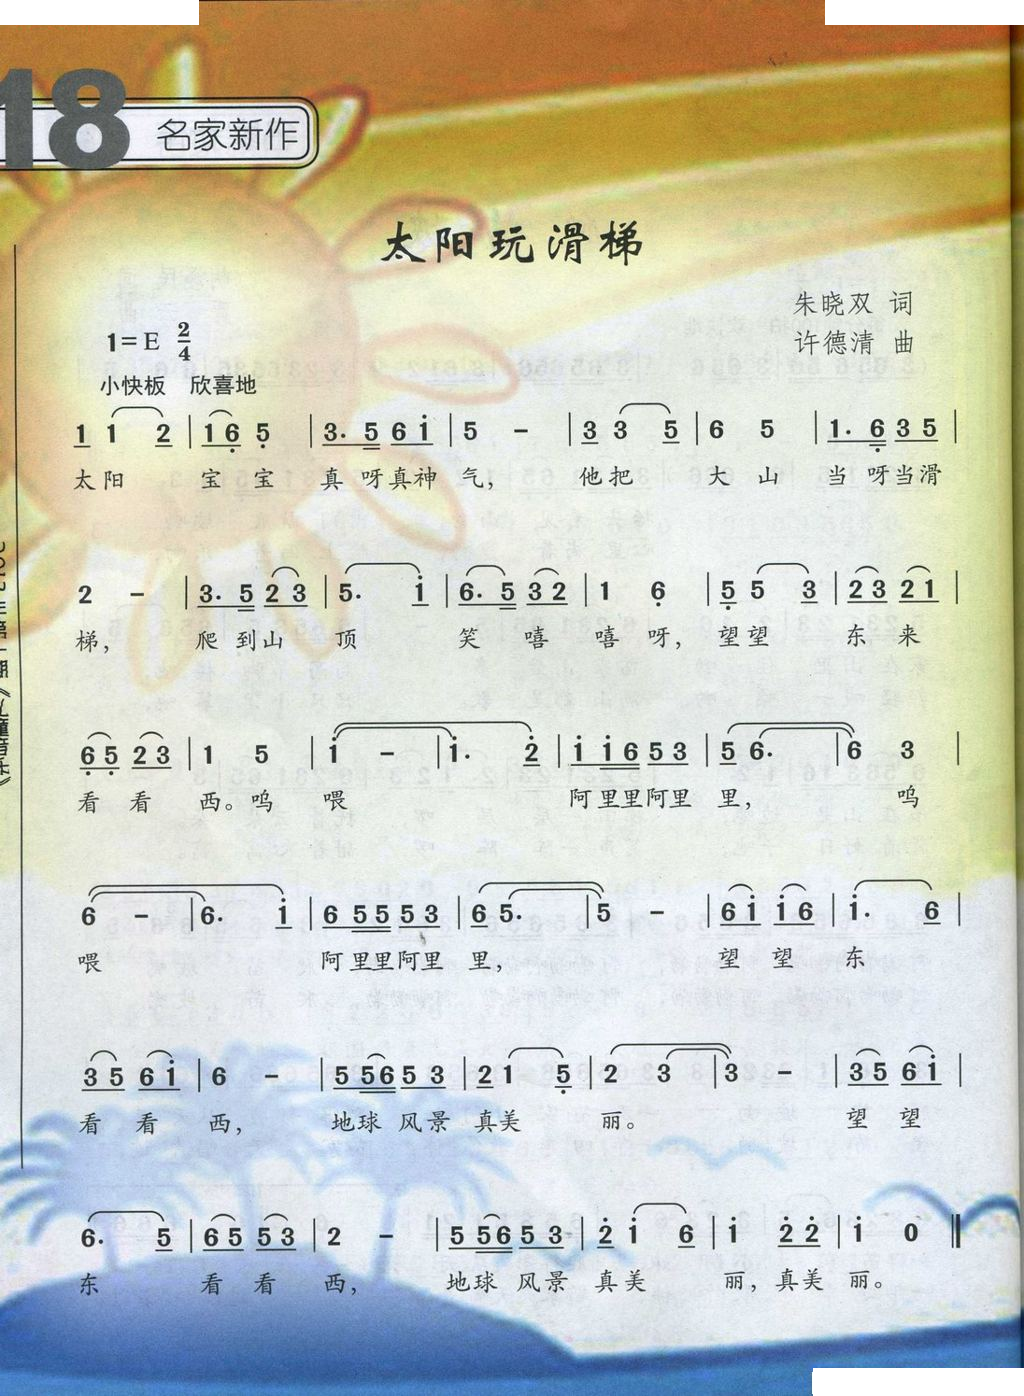 18
名家新作
太阳玩滑梯
朱晓双 词
许德清 曲
1=E 2/4
小快板 欣喜地
1 1 2 | 1 6 5 | 3. 5 6 1 | 5 - | 3 3 5 | 6 5 | 1. 6 3 5 |
太阳 宝 宝 真 呀真神 气, 他把 大 山 当 呀当滑
2 - | 3. 5 2 3 | 5. 1 | 6. 5 3 2 | 1 6 | 5 5 3 | 2 3 2 1 |
梯, 爬 到山 顶 笑 嘻 嘻 呀, 望望 东 来
6 5 2 3 | 1 5 | 1 - | 1. 2 | 1 1 6 5 3 | 5 6. | 6 3 |
看 看 西。呜 喂 阿里里阿里 里, 呜
6 - | 6. 1 | 6 5 5 5 3 | 6 5. | 5 - | 6 1 1 6 | 1. 6 |
喂 阿里里阿里 里, 望 望 东
3 5 6 1 | 6 - | 5 5 6 5 3 | 2 1 5 | 2 3 | 3 - | 3 5 6 1 |
看 看 西, 地球 风景 真美 丽。 望 望
6. 5 | 6 5 5 3 | 2 - | 5 5 6 5 3 | 2 1 6 | 1 2 2 | 1 0 ‖
东 看 看 西, 地球 风景 真美 丽,真美 丽。